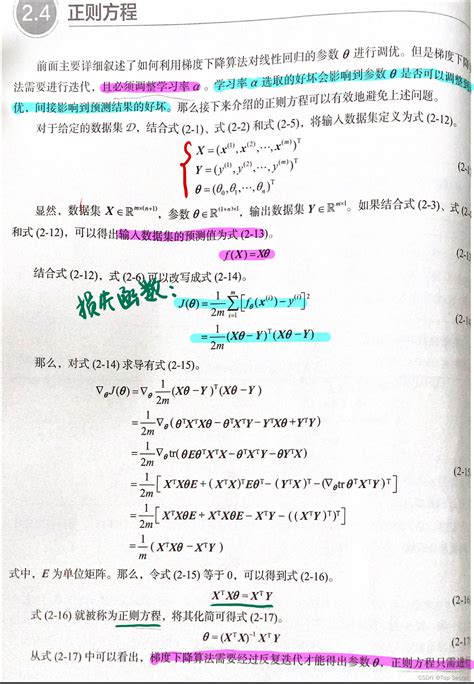 2.4 正则方程
前面主要详细叙述了如何利用梯度下降算法对线性回归的参数 θ 进行调优。但是梯度下降
法需要进行迭代，且必须调整学习率 α。学习率 α 选取的好坏会影响到参数 θ 是否可以调整到
优，间接影响到预测结果的好坏。那么接下来介绍的正则方程可以有效地避免上述问题。
对于给定的数据集 𝒟，结合式 (2-1)、式 (2-2) 和式 (2-5)，将输入数据集定义为式 (2-12)。
X = (x⁽¹⁾, x⁽²⁾, ⋯, x⁽ᵐ⁾)ᵀ
Y = (y⁽¹⁾, y⁽²⁾, ⋯, y⁽ᵐ⁾)ᵀ (2-1
θ = (θ₀, θ₁, ⋯, θₙ)ᵀ
显然，数据集 X∈ℝ^{m×(n+1)}，参数 θ∈ℝ^{(1+n)×1}，输出数据集 Y∈ℝ^{m×1}。如果结合式 (2-3)、式 (2
和式 (2-12)，可以得出输入数据集的预测值为式 (2-13)。
f(X) = Xθ (2-1
结合式 (2-12)，式 (2-6) 可以改写成式 (2-14)。
损失函数：
J(θ) = 1/2m ∑_{i=1}^{m} [f_θ(x⁽ⁱ⁾) − y⁽ⁱ⁾]²
(2-1
= 1/2m (Xθ − Y)ᵀ(Xθ − Y)
那么，对式 (2-14) 求导有式 (2-15)。
∇_θ J(θ) = ∇_θ 1/2m (Xθ − Y)ᵀ(Xθ − Y)
= 1/2m ∇_θ (θᵀXᵀXθ − θᵀXᵀY − YᵀXθ + YᵀY)
= 1/2m ∇_θ tr(θEθᵀXᵀX − θᵀXᵀY − θYᵀX)
(2-15
= 1/2m [XᵀXθE + (XᵀX)ᵀEθᵀ − (YᵀX)ᵀ − (∇_θ tr θᵀXᵀY)ᵀ]
= 1/2m [XᵀXθE + XᵀXθE − XᵀY − ((XᵀY)ᵀ)ᵀ]
= 1/m (XᵀXθ − XᵀY)
式中，E 为单位矩阵。那么，令式 (2-15) 等于 0，可以得到式 (2-16)。
XᵀXθ = XᵀY (2-16
式 (2-16) 就被称为正则方程，将其化简可得式 (2-17)。
θ = (XᵀX)⁻¹ XᵀY (2-17
从式 (2-17) 中可以看出，梯度下降算法需要经过反复迭代才能得出参数 θ，正则方程只需进
CSDN @Top Secret